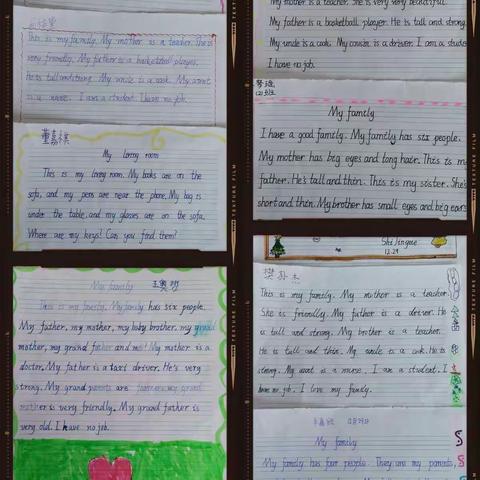 This is my family. My mother is a teacher. She is
very friendly. My father is a basketball player.
He is tall and strong. My uncle is a cook. My aunt
is a nurse. I am a student. I have no job.
董嘉祺
My living room
This is my living room. My books are on the
sofa, and my pens are near the phone. My bag is
under the table, and my glasses are on the sofa.
Where are my keys? Can you find them?
My family
This is my family. My family has six people.
My father, my mother, my baby brother, my grand
mother, my grand father and me! My mother is a
doctor. My father is a taxi driver. He's very
strong. My grand parents are my grand
mother is very friendly. My grand father is
very old. I have no job.
My mother is a teacher. She is very very beautiful.
My father is a basketball player. He is tall and strong.
My uncle is a cook. My cousin is a driver. I am a stude
I have no job.
My family
I have a good family. My family has six people.
My mother has big eyes and long hair. This is m
father. He's tall and thin. This is my sister. She's
short and thin. My brother has small eyes and big ears
Shi Jingue
12.29
This is my family. My mother is a teacher.
She is friendly. My father is a driver. He
is tall and strong. My brother is a teacher.
He is tall and thin. My uncle is a cook. He is
strong. My aunt is a nurse. I am a student. I
have no job. I love my family.
My family
My family has four people. They are my parents,
TEXTURE FILM
TEXTURE FILM
TEXTURE FILM
TEXTURE FILM